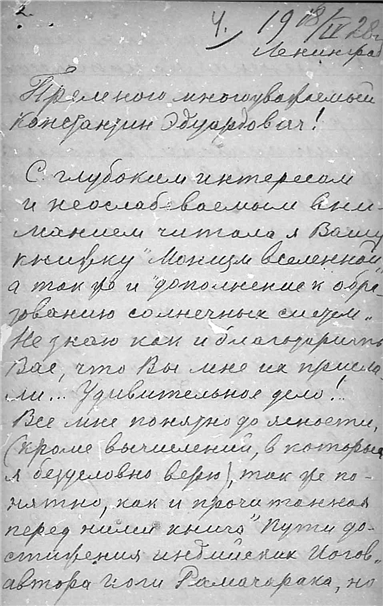 2
4. 19 18/IV 28г
Ленинград
Премного многоуважаемый
Константин Эдуардович!
С глубоким интересом
и неослабеваемым вни-
манием читала я Вашу
книжку "Монизм вселенной"
а также и "дополнение к обра-
зованию солнечных систем".
Не знаю как и благодарить
Вас, что Вы мне их присла-
ли... Удивительное дело!..
Все мне понятно до ясности,
(кроме вычислений, в которые
я безусловно верю), так же по-
нятно, как и прочитанная
перед ними книга "Пути до-
стижения индийских Иогов"
автора Иоги Рамачарака, но